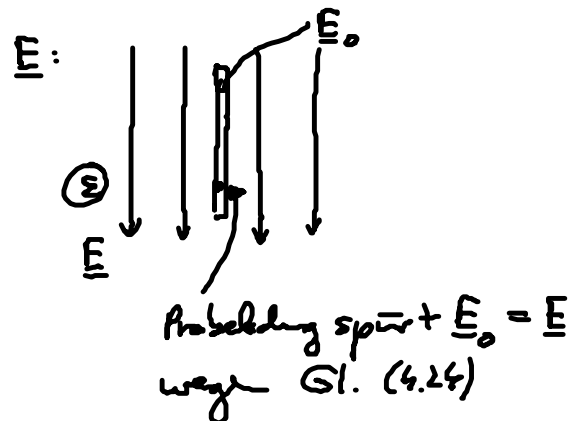 E₀
E:
ε
E
Probeladung spürt E₀ = E
wegen Gl. (4.24)